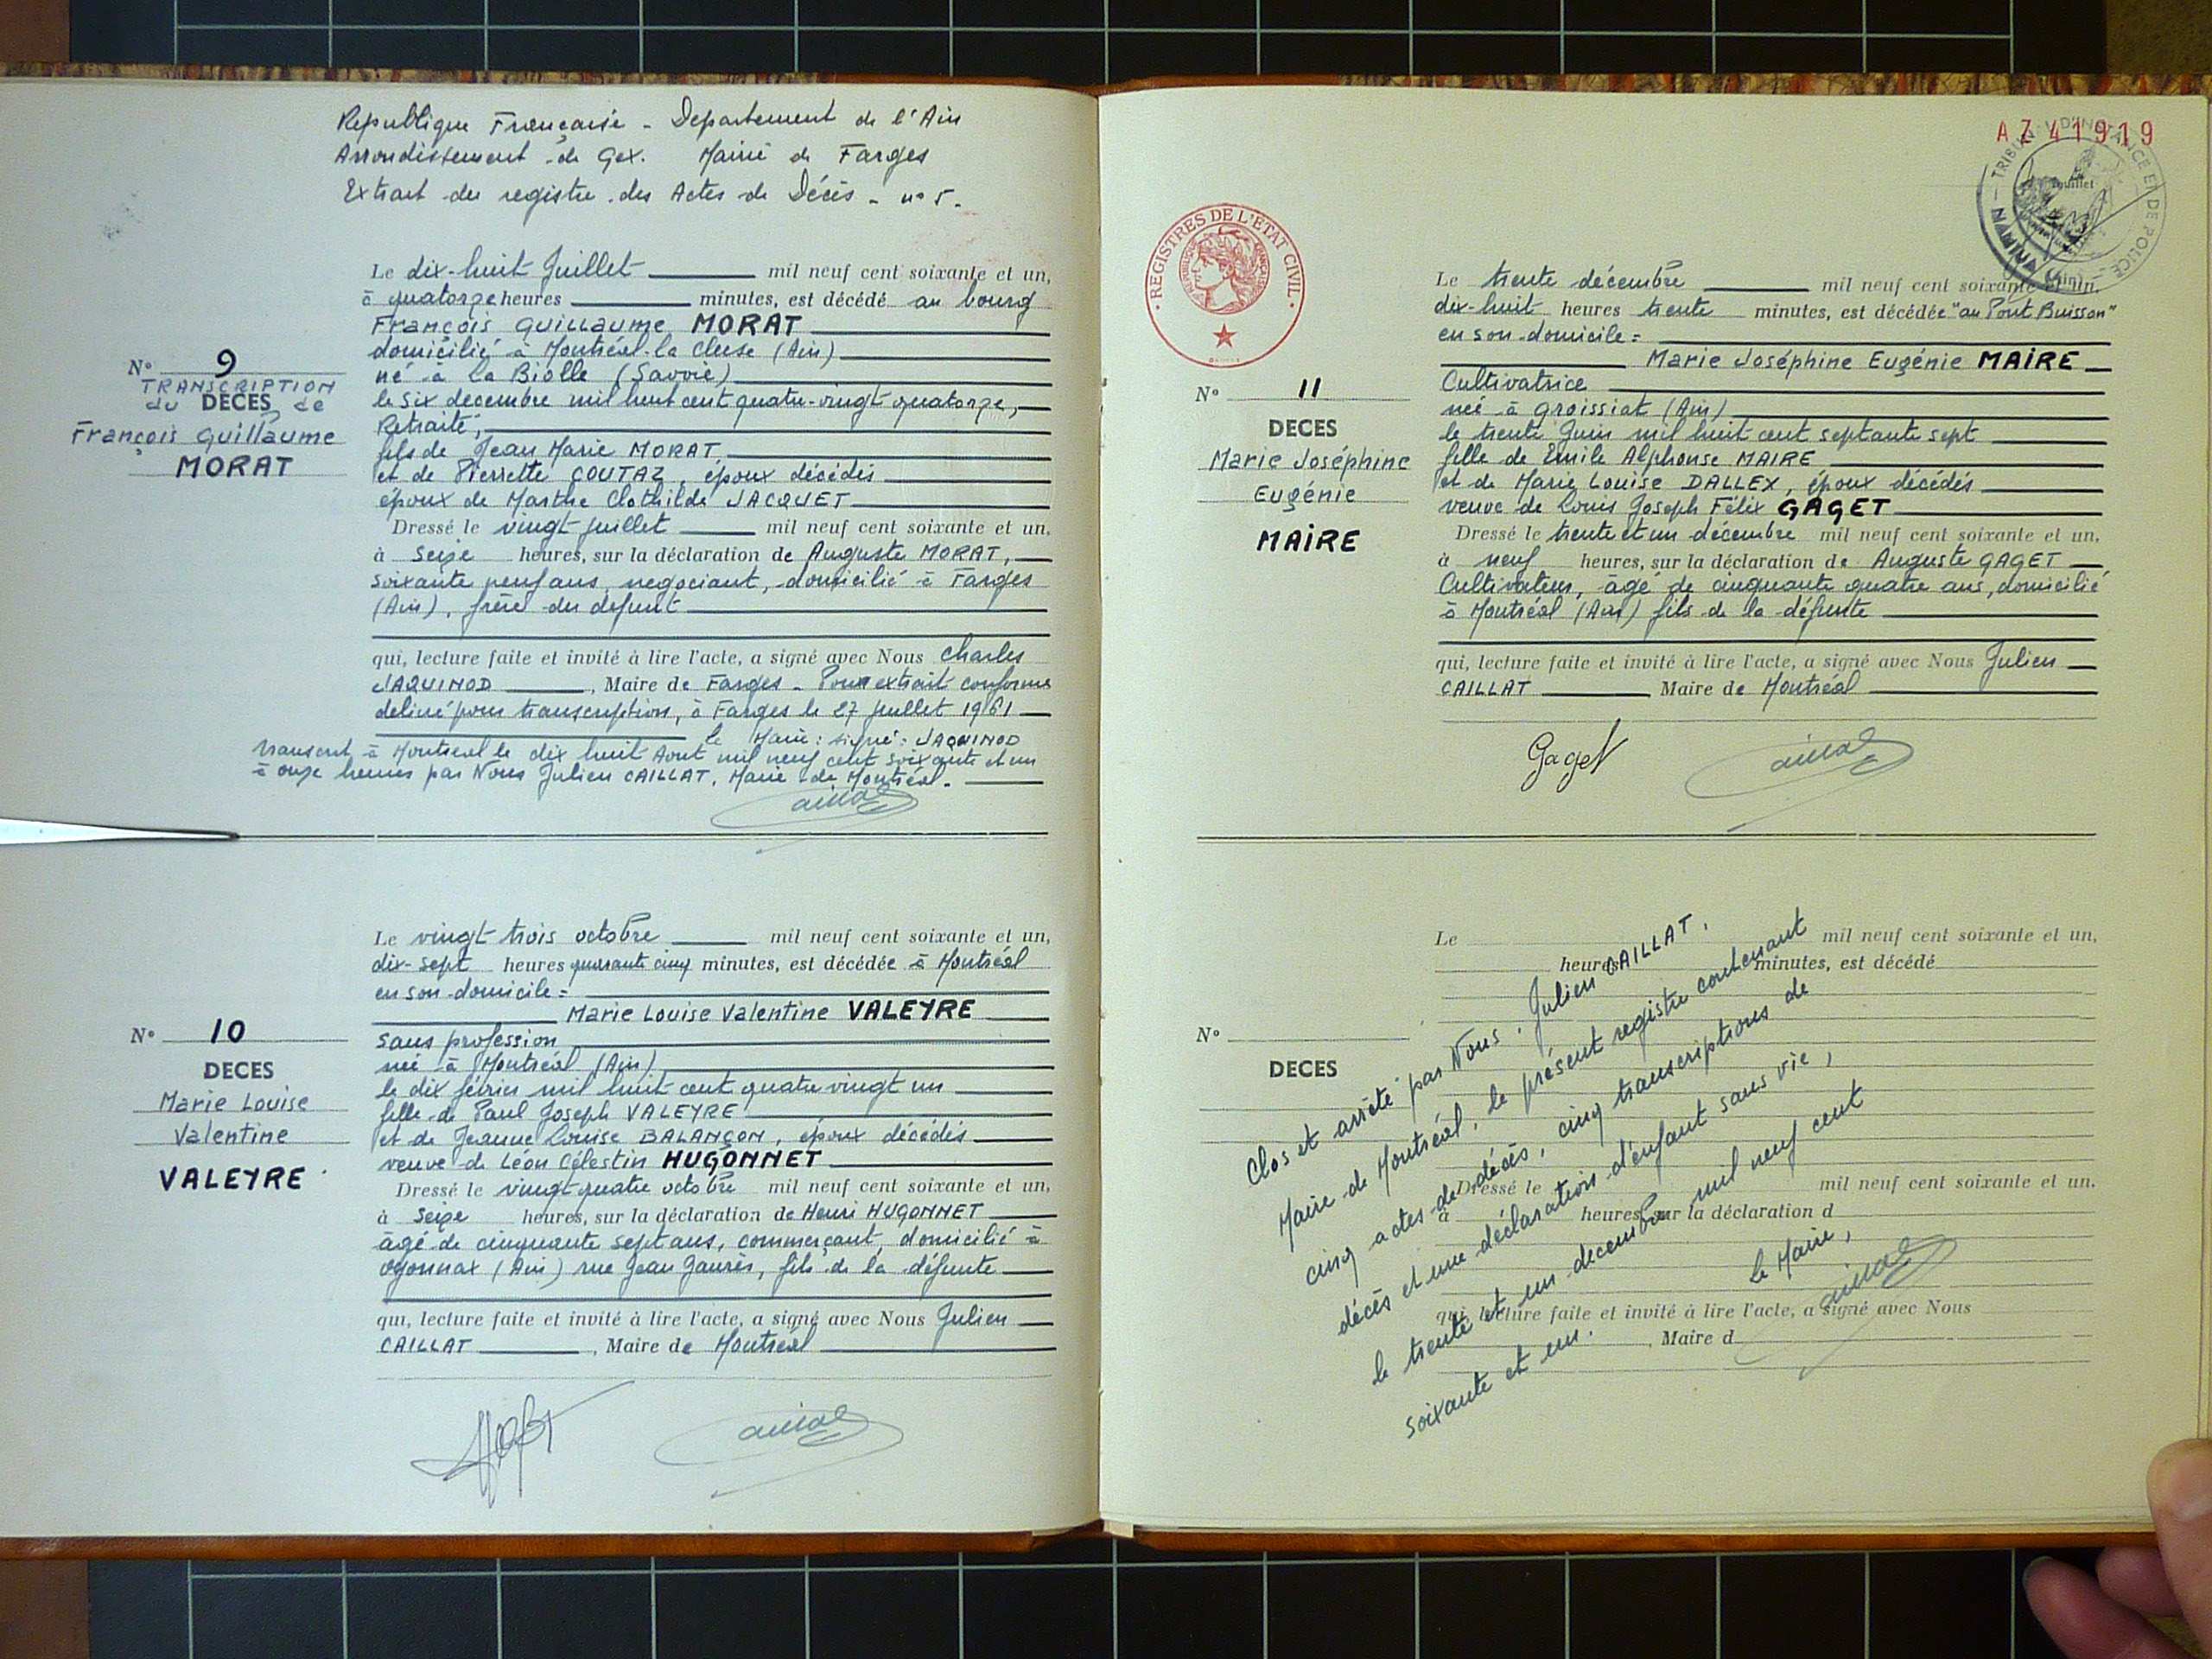 Republique Française - Departement de l'Ain
Arrondissement de Gex. Mairie de Farges
Extrait du registre des Actes de Décès - n° 5.
Le dix-huit Juillet mil neuf cent soixante et un,
à quatorze heures minutes, est décédé au bourg
François Guillaume MORAT
domicilié à Montréal-la Cluse (Ain)
né à La Biolle (Savoie)
le six decembre mil huit cent quatre-vingt quatorze,
Retraité,
fils de Jean Marie MORAT,
et de Pierrette COUTAZ, époux décédés
époux de Marthe Clothilde JACQUET
Dressé le vingt juillet mil neuf cent soixante et un,
à seize heures, sur la déclaration de Auguste MORAT,
soixante neuf ans, negociant, domicilié à Farges
(Ain), frère du defunt
qui, lecture faite et invité à lire l'acte, a signé avec Nous Charles
JAQUINOD, Maire de Farges - Pour extrait conforme
delivré pour transcription, à Farges le 27 Juillet 1961
le Maire : signé : JAQUINOD
Transcrit à Montreal le dix huit Aout mil neuf cent soixante et un
à onze heures par Nous Julien CAILLAT, Maire de Montréal.
N° 9
TRANSCRIPTION
du DECES de
François Guillaume
MORAT
Le vingt trois octobre mil neuf cent soixante et un,
dix-sept heures quarante cinq minutes, est décédée à Montréal
en son domicile =
Marie Louise Valentine VALEYRE
sans profession
née à Montréal (Ain)
le dix février mil huit cent quatre vingt un
fille de Paul Joseph VALEYRE
et de Jeanne Louise BALANÇON, époux décédés
veuve de Léon Célestin HUGONNET
Dressé le vingt quatre octobre mil neuf cent soixante et un,
à seize heures, sur la déclaration de Henri HUGONNET
âgé de cinquante sept ans, commerçant, domicilié à
Oyonnax (Ain) rue Jean Jaurès, fils de la défunte
qui, lecture faite et invité à lire l'acte, a signé avec Nous Julien
CAILLAT, Maire de Montréal
N° 10
DECES
Marie Louise
Valentine
VALEYRE
AZ 41919
TRIBUNAL D'INSTANCE ET DE POLICE
NANTUA (Ain)
REGISTRES DE L'ETAT CIVIL
Le trente décembre mil neuf cent soixante et un,
dix-huit heures trente minutes, est décédée "au Pont Buisson"
en son domicile =
Marie Joséphine Eugénie MAIRE
Cultivatrice
née à Groissiat (Ain)
le trente Juin mil huit cent septante sept
fille de Emile Alphonse MAIRE
et de Marie Louise DALLEX, époux décédés
veuve de Louis Joseph Félix GAGET
Dressé le trente et un décembre mil neuf cent soixante et un,
à neuf heures, sur la déclaration de Auguste GAGET
Cultivateur, âgé de cinquante quatre ans, domicilié
à Montréal (Ain) fils de la défunte
qui, lecture faite et invité à lire l'acte, a signé avec Nous Julien
CAILLAT, Maire de Montréal
Gaget
N° 11
DECES
Marie Joséphine
Eugénie
MAIRE
Le mil neuf cent soixante et un,
heures minutes, est décédé
N°
DECES
Dressé le mil neuf cent soixante et un.
à heures, sur la déclaration d
qui, lecture faite et invité à lire l'acte, a signé avec Nous
, Maire d
Clos et arrêté par Nous. Julien CAILLAT,
Maire de Montréal, le présent registre contenant
cinq actes de décès, cinq transcriptions de
décès et une déclaration d'enfant sans vie,
le trente et un decembre mil neuf cent
soixante et un.
le Maire,